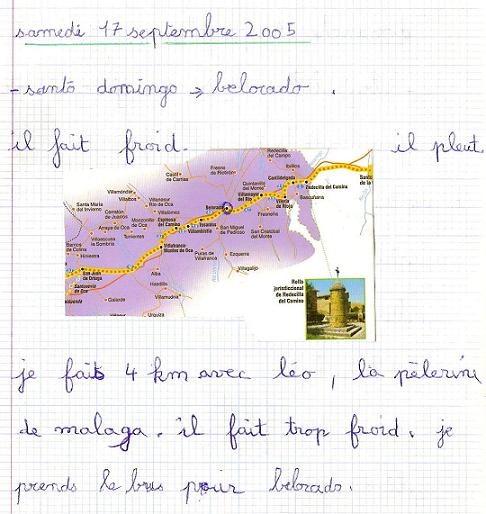 samedi 17 septembre 2005
- santo domingo → belorado.
il fait froid. il pleut.
Redecilla
del Campo
Ibrillos
Castil
de Carrias
Castildelgado
Redecilla del Camino
Santo
de la
Quintanilla
del Monte
Villamayor
del Río
Viloria
de Rioja
Bascuñana
Villamóndar
Villalbos
Villanasur
Río de Oca
Santa María
del Invierno
Cerratón
de Juarros
Villalómez
Belorado
Fresneña
Mozoncillo
de Oca
Espinosa
del Camino
Tosantos
Villambistia
San Miguel
de Pedroso
San Cristóbal
del Monte
Arraya de Oca
Turrientes
Villaescusa
la Sombría
Barrios
de Colina
Hiniestra
Villafranca
Montes de Oca
Puras de
Villafranca
Ezquerra
Villagalijo
San Juan
de Ortega
Alba
Santovenia
de Oca
Galarde
Villamudria
Urquiza
Rollo
jurisdiccional
de Redecilla
del Camino
je fais 4 km avec léo, la pèlerine
de malaga. il fait trop froid. je
prends le bus pour belorado.